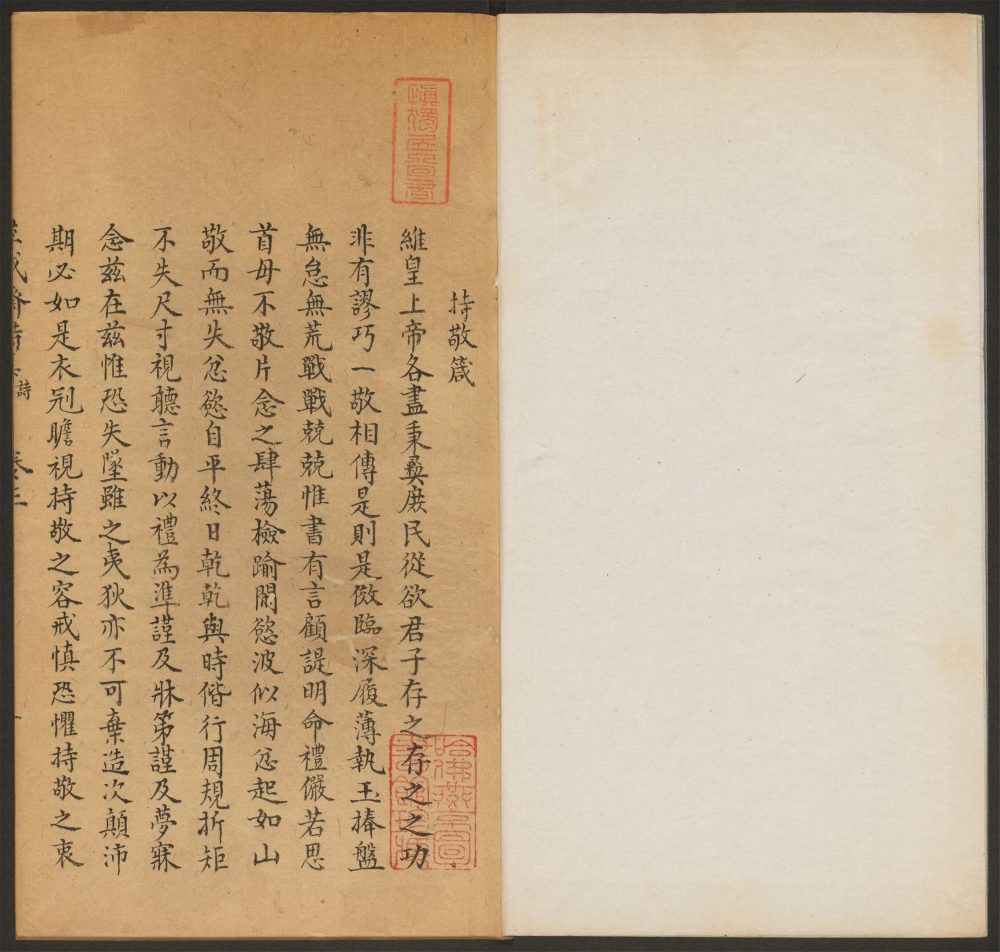 持敬箴
維皇上帝各盡秉彝庻民從欲君子存之存之之功
非有謬巧一敬相傳是則是傚臨深履薄執玉捧盤
無怠無荒戰戰兢兢惟書有言顧諟明命禮儼若思
首毋不敬片念之肆蕩檢踰閑慾波似海忿起如山
敬而無失忿慾自平終日乾乾與時偕行周規折矩
不失尺寸視聽言動以禮為準謹及牀第謹及夢寐
念茲在茲惟恐失墜雖之夷狄亦不可棄造次顛沛
期必如是衣冠瞻視持敬之容戒慎恐懼持敬之衷
詩
哈佛燕京